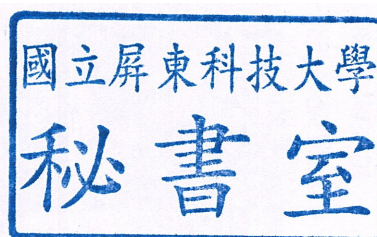 國立屏東科技大學
秘書室